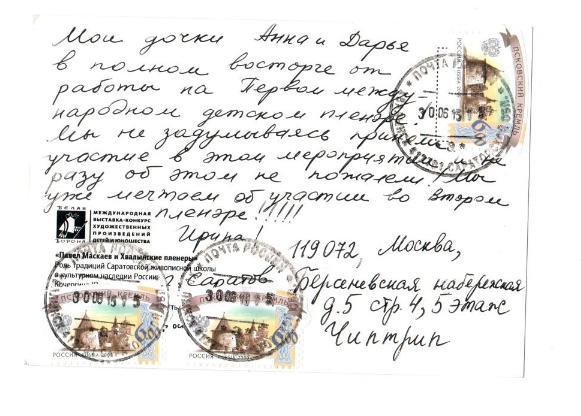 Мои дочки Анна и Дарье
в полном восторге от
работы на Первом между
народном детском пленэре
Мы не задумываясь приняли
участие в этом мероприятии и ни
разу об этом не пожалели! Мы
уже мечтаем об участии во втором
пленэре!!!!!
Ирина!
г. Саратов
БЕЛАЯ
ВОРОНА
МЕЖДУНАРОДНАЯ
ВЫСТАВКА-КОНКУРС
ХУДОЖЕСТВЕННЫХ
ПРОИЗВЕДЕНИЙ
ДЕТЕЙ И ЮНОШЕСТВА
«Павел Маскаев и Хвалынские пленеры»
Роль Традиций Саратовской живописной школы
в культурном наследии России
119072, Москва,
Берсеневская набережная
д.5 стр.4, 5 этаж
Чиптрип
ПСКОВСКИЙ КРЕМЛЬ
РОССИЯ
ПОЧТА РОССИИ
30 06 15
ПОЧТА РОССИИ
30 06 15
РОССИЯ
6.00
ПОЧТА РОССИИ
30 06 15
РОССИЯ
6.00